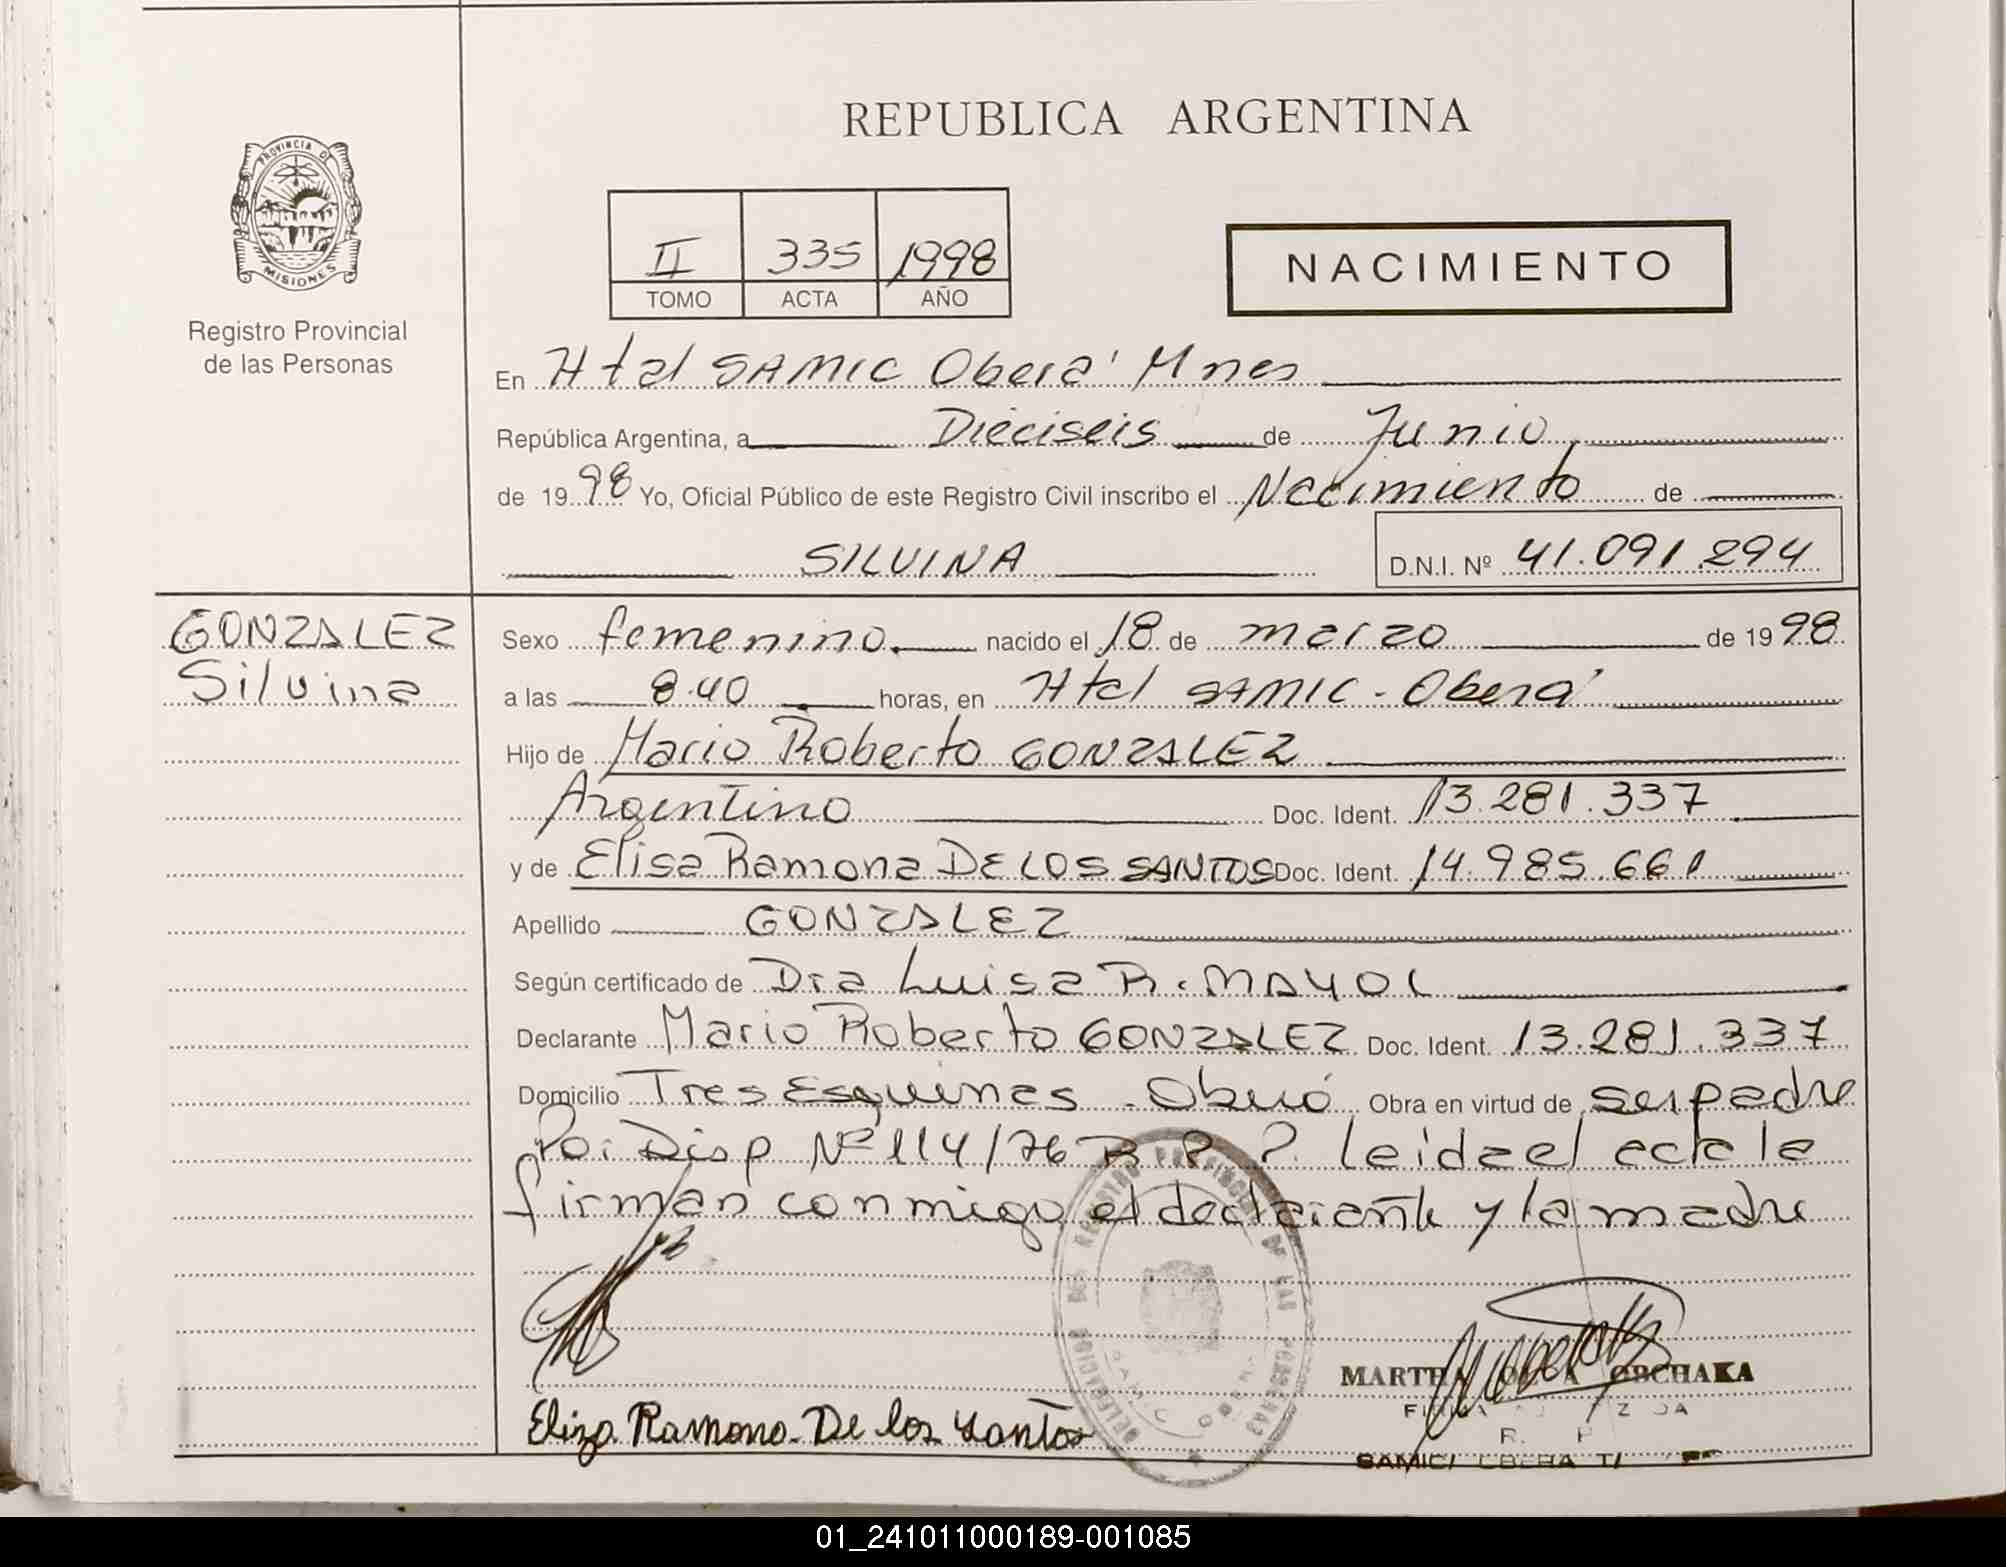 REPUBLICA ARGENTINA
PROVINCIA DE
MISIONES
Registro Provincial
de las Personas
II 335 1998
TOMO ACTA AÑO
NACIMIENTO
En Htal SAMIC Oberá Mnes
República Argentina, a Dieciseis de Junio
de 1998 Yo, Oficial Público de este Registro Civil inscribo el Nacimiento de
SILVINA D.N.I. Nº 41.091.294
GONZALEZ
Silvina
Sexo femenino nacido el 18 de marzo de 1998
a las 8.40 horas, en Htal SAMIC - Oberá
Hijo de Mario Roberto GONZALEZ
Argentino Doc. Ident. 13.281.337
y de Elisa Ramona DE LOS SANTOS Doc. Ident. 14.985.661
Apellido GONZALEZ
Según certificado de Dra Luisa R. MAYOL
Declarante Mario Roberto GONZALEZ Doc. Ident. 13.281.337
Domicilio Tres Esquinas - Oberá Obra en virtud de ser padre
Por Disp Nº 114/76 R. P. P. leida el acta la
firman conmigo el declarante y la madre
DELEGACION DEL REGISTRO PROVINCIAL DE LAS PERSONAS
MARTHA ORCHAKA
Eliza Ramona De los Santos
01_241011000189-001085